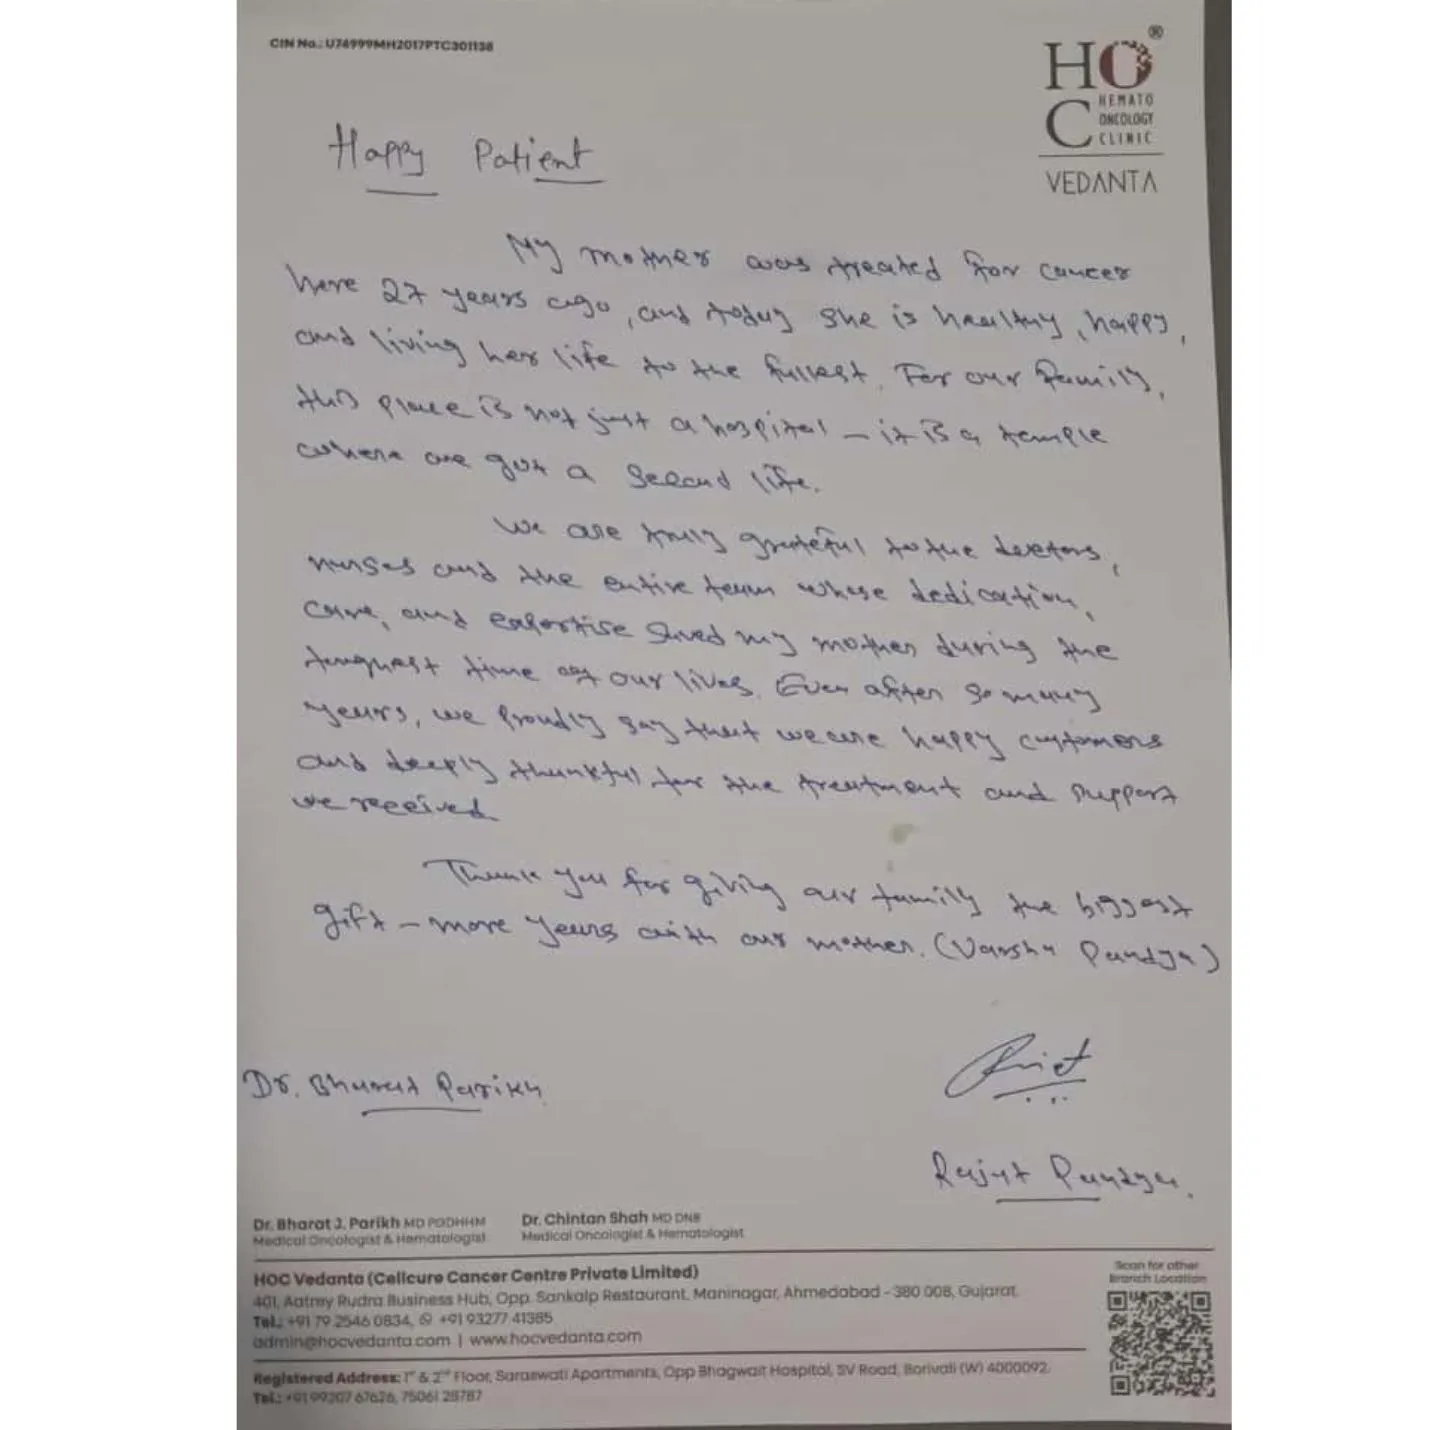 CIN No.: U74999MH2017PTC301138
HOC®
HEMATO
ONCOLOGY
CLINIC
VEDANTA
Happy Patient
My mother was treated for cancer
here 27 years ago, and today she is healthy, happy,
and living her life to the fullest. For our family,
this place is not just a hospital – it is a temple
where we got a second life.
We are truly grateful to the doctors,
nurses and the entire team whose dedication,
care, and expertise saved my mother during the
toughest time of our lives. Even after so many
years, we proudly say that we are happy customers
and deeply thankful for the treatment and support
we received.
Thank you for giving our family the biggest
gift – more years with our mother. (Varsha Pandya)
Dr. Bharat Parikh
Rajat Pandya.
Dr. Bharat J. Parikh MD PGDHHM
Medical Oncologist & Hematologist
Dr. Chintan Shah MD DNB
Medical Oncologist & Hematologist
HOC Vedanta (Cellcure Cancer Centre Private Limited)
401, Aatrey Rudra Business Hub, Opp. Sankalp Restaurant, Maninagar, Ahmedabad - 380 008, Gujarat.
Tel.: +91 79 2546 0834, +91 93277 41385
admin@hocvedanta.com | www.hocvedanta.com
Scan for other
Branch Location
Registered Address: 1st & 2nd Floor, Saraswati Apartments, Opp Bhagwati Hospital, SV Road, Borivali (W) 4000092.
Tel.: +91 99207 67626, 75061 28787